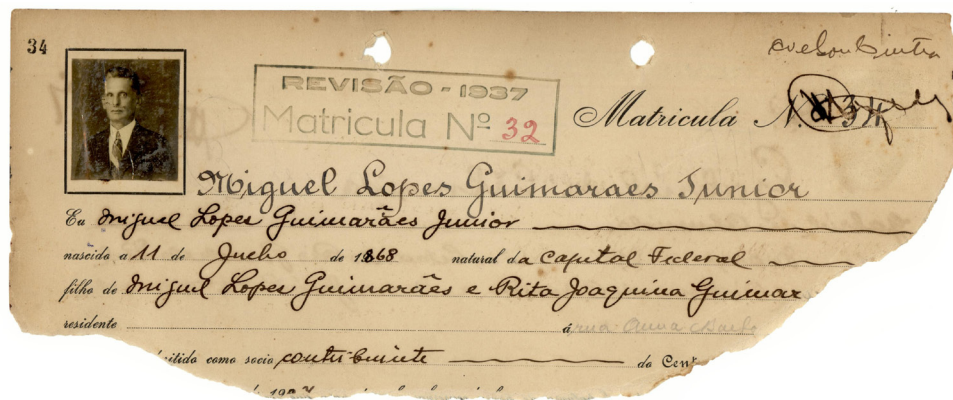 34
REVISÃO - 1937
Matricula Nº 32
Matricula N. 34
Miguel Lopes Guimaraes Junior
Eu Miguel Lopes Guimarães Junior
nascido a 11 de Julho de 1868 natural da Capital Federal
filho de Miguel Lopes Guimarães e Rita Joaquina Guimar
residente á rua Anna
itido como socio contribuinte do Cent